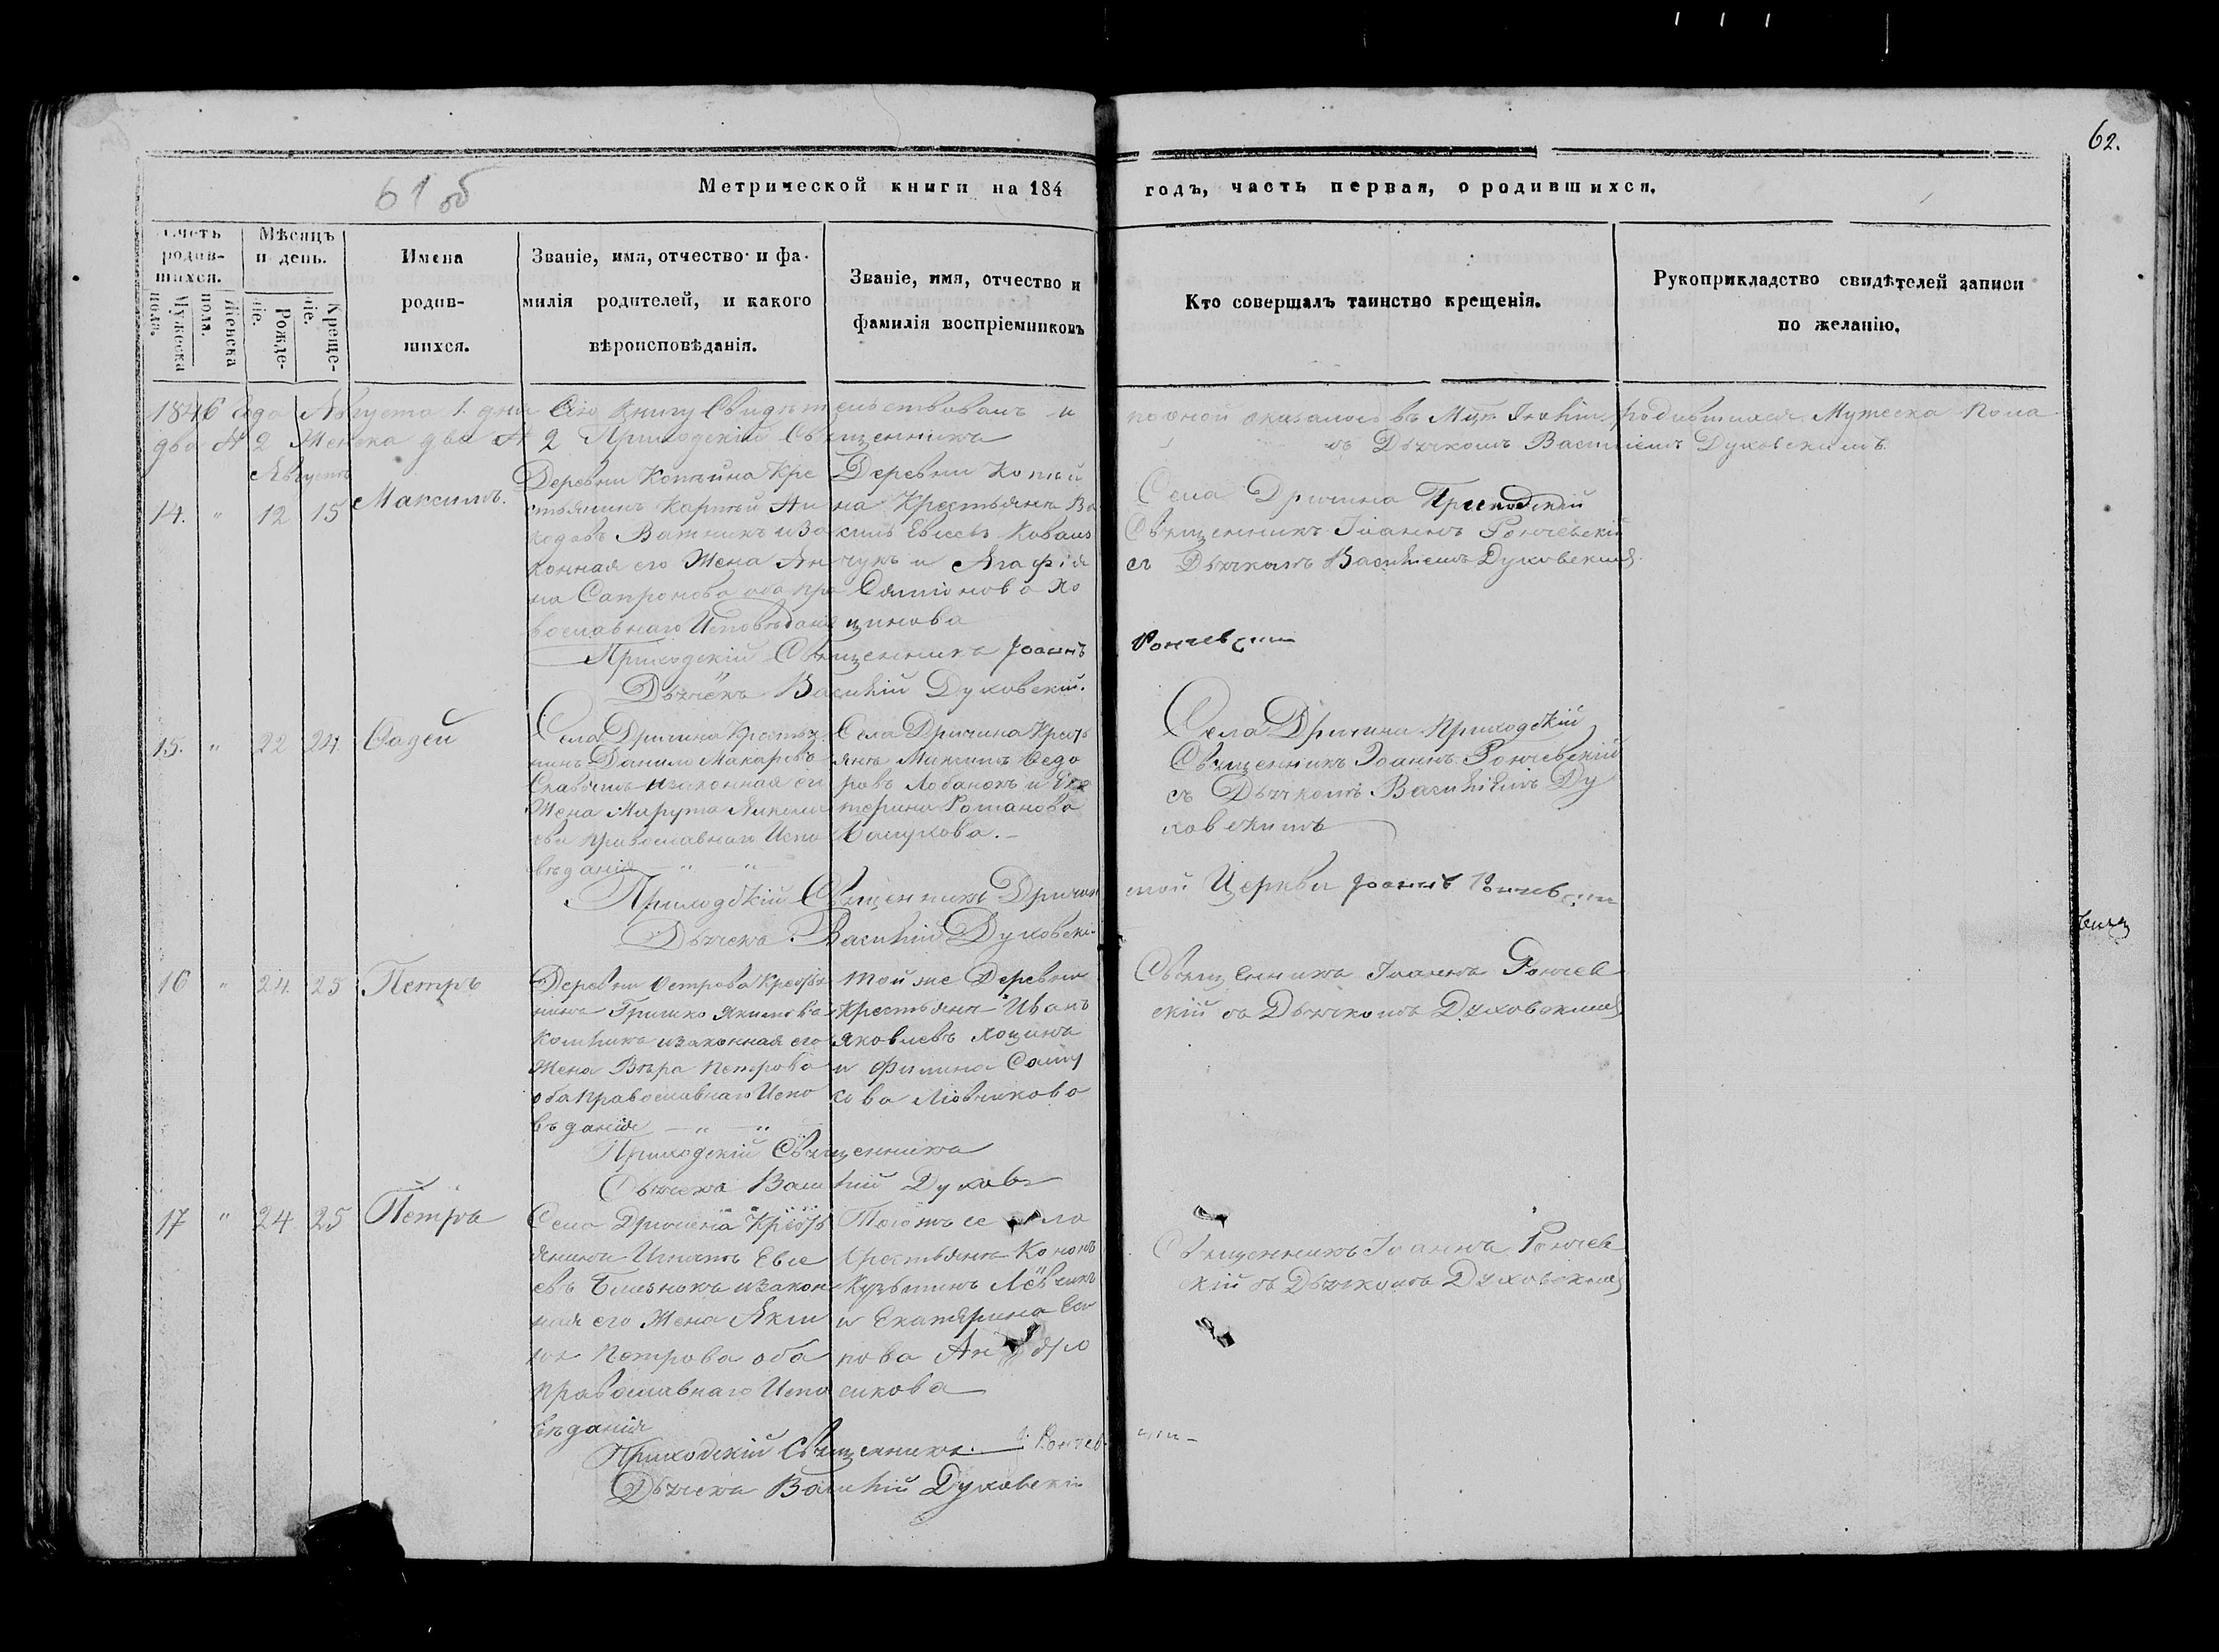 62.
61 об
Метрической книги на 184 годъ, часть первая, о родившихся.
Счетъ родив-
шихся.
Мужеска пола.
Женска пола.
Мѣсяцъ и день.
Рожде-
ніе.
Креще-
ніе.
Имена
родив-
шихся.
Званіе, имя, отчество и фа-
милія родителей, и какого
вѣроисповѣданія.
Званіе, имя, отчество и
фамилія воспріемниковъ
Кто совершалъ таинство крещенія.
Рукоприкладство свидѣтелей записи
по желанію.
1846 года Августа 1. дня Сію Книгу Свидѣтельствовалъ и по оной оказалось въ родившихся Мужеска Пола
два № 2 Женска два № 2 Приходскій Священникъ съ Дьячкомъ Василіемъ Духовскимъ
Августъ
14. " 12 15 Максимъ.
Деревни Копѣйна Кре
стьянинъ Карпѣй Ни
кодовъ Важникъ и За
конная его Жена Ан
на Сапронова оба пра
вославнаго Исповѣданія
Деревни Копѣй
на Крестьянъ Ва
силь Евсеевъ Коваль
чукъ и Агафія
Симіонова Хо
цинова
Села Дричина Приходскій
Священникъ Іоаннъ Рончевскій
съ Дьячкомъ Василіемъ Духовскимъ
Приходскій Священникъ Іоаннъ Рончевскій
Дьячекъ Василій Духовскій.
15. " 22 24 Фадей
Села Дричина Крестья
нинъ Данило Макаровъ
и законная его
Жена Марута
ва православнаго Испо
вѣданія — " — "
Села Дричина Кресть
янъ Максимъ Ѳедо
ровъ Лобанокъ и Ека
терина Романова
Самухова. —
Села Дричина Приходскій
Священникъ Іоаннъ Рончевскій
съ Дьячкомъ Василіемъ Ду
ховскимъ
Приходскій Священникъ Дричин
ской Церкви Іоаннъ Рончевскій
Дьячекъ Василій Духовскій
16 " 24. 25 Петръ
Деревни Острова Крестья
нинъ Гришко Якимовъ
и законная его
Жена Вѣра Петрова
оба православнаго Испо
вѣданія — " — "
Той же Деревни
Крестьянъ Иванъ
Яковлевъ Хоцинъ
и Филина Саму
сова Ліовчикова
Священникъ Іоаннъ Рончев
скій съ Дьячкомъ Духовскимъ
Приходскій Священникъ
Дьячекъ Василій Духовс
17 " 24. 25 Петръ
Села Дричина Кресть
янинъ Игнатъ Евсе
евъ Близнюкъ и закон
ная его Жена Аким
Петрова оба
православнаго Испо
вѣданія
Тогожъ села
Крестьянъ Кононъ
Кузьминъ Лёвчикъ
и Екатерина
пова Андро
сикова
Священникъ Іоаннъ Рончев
скій съ Дьячкомъ Духовскимъ
Приходскій Священникъ. І. Рончевскій
Дьячекъ Василій Духовскій